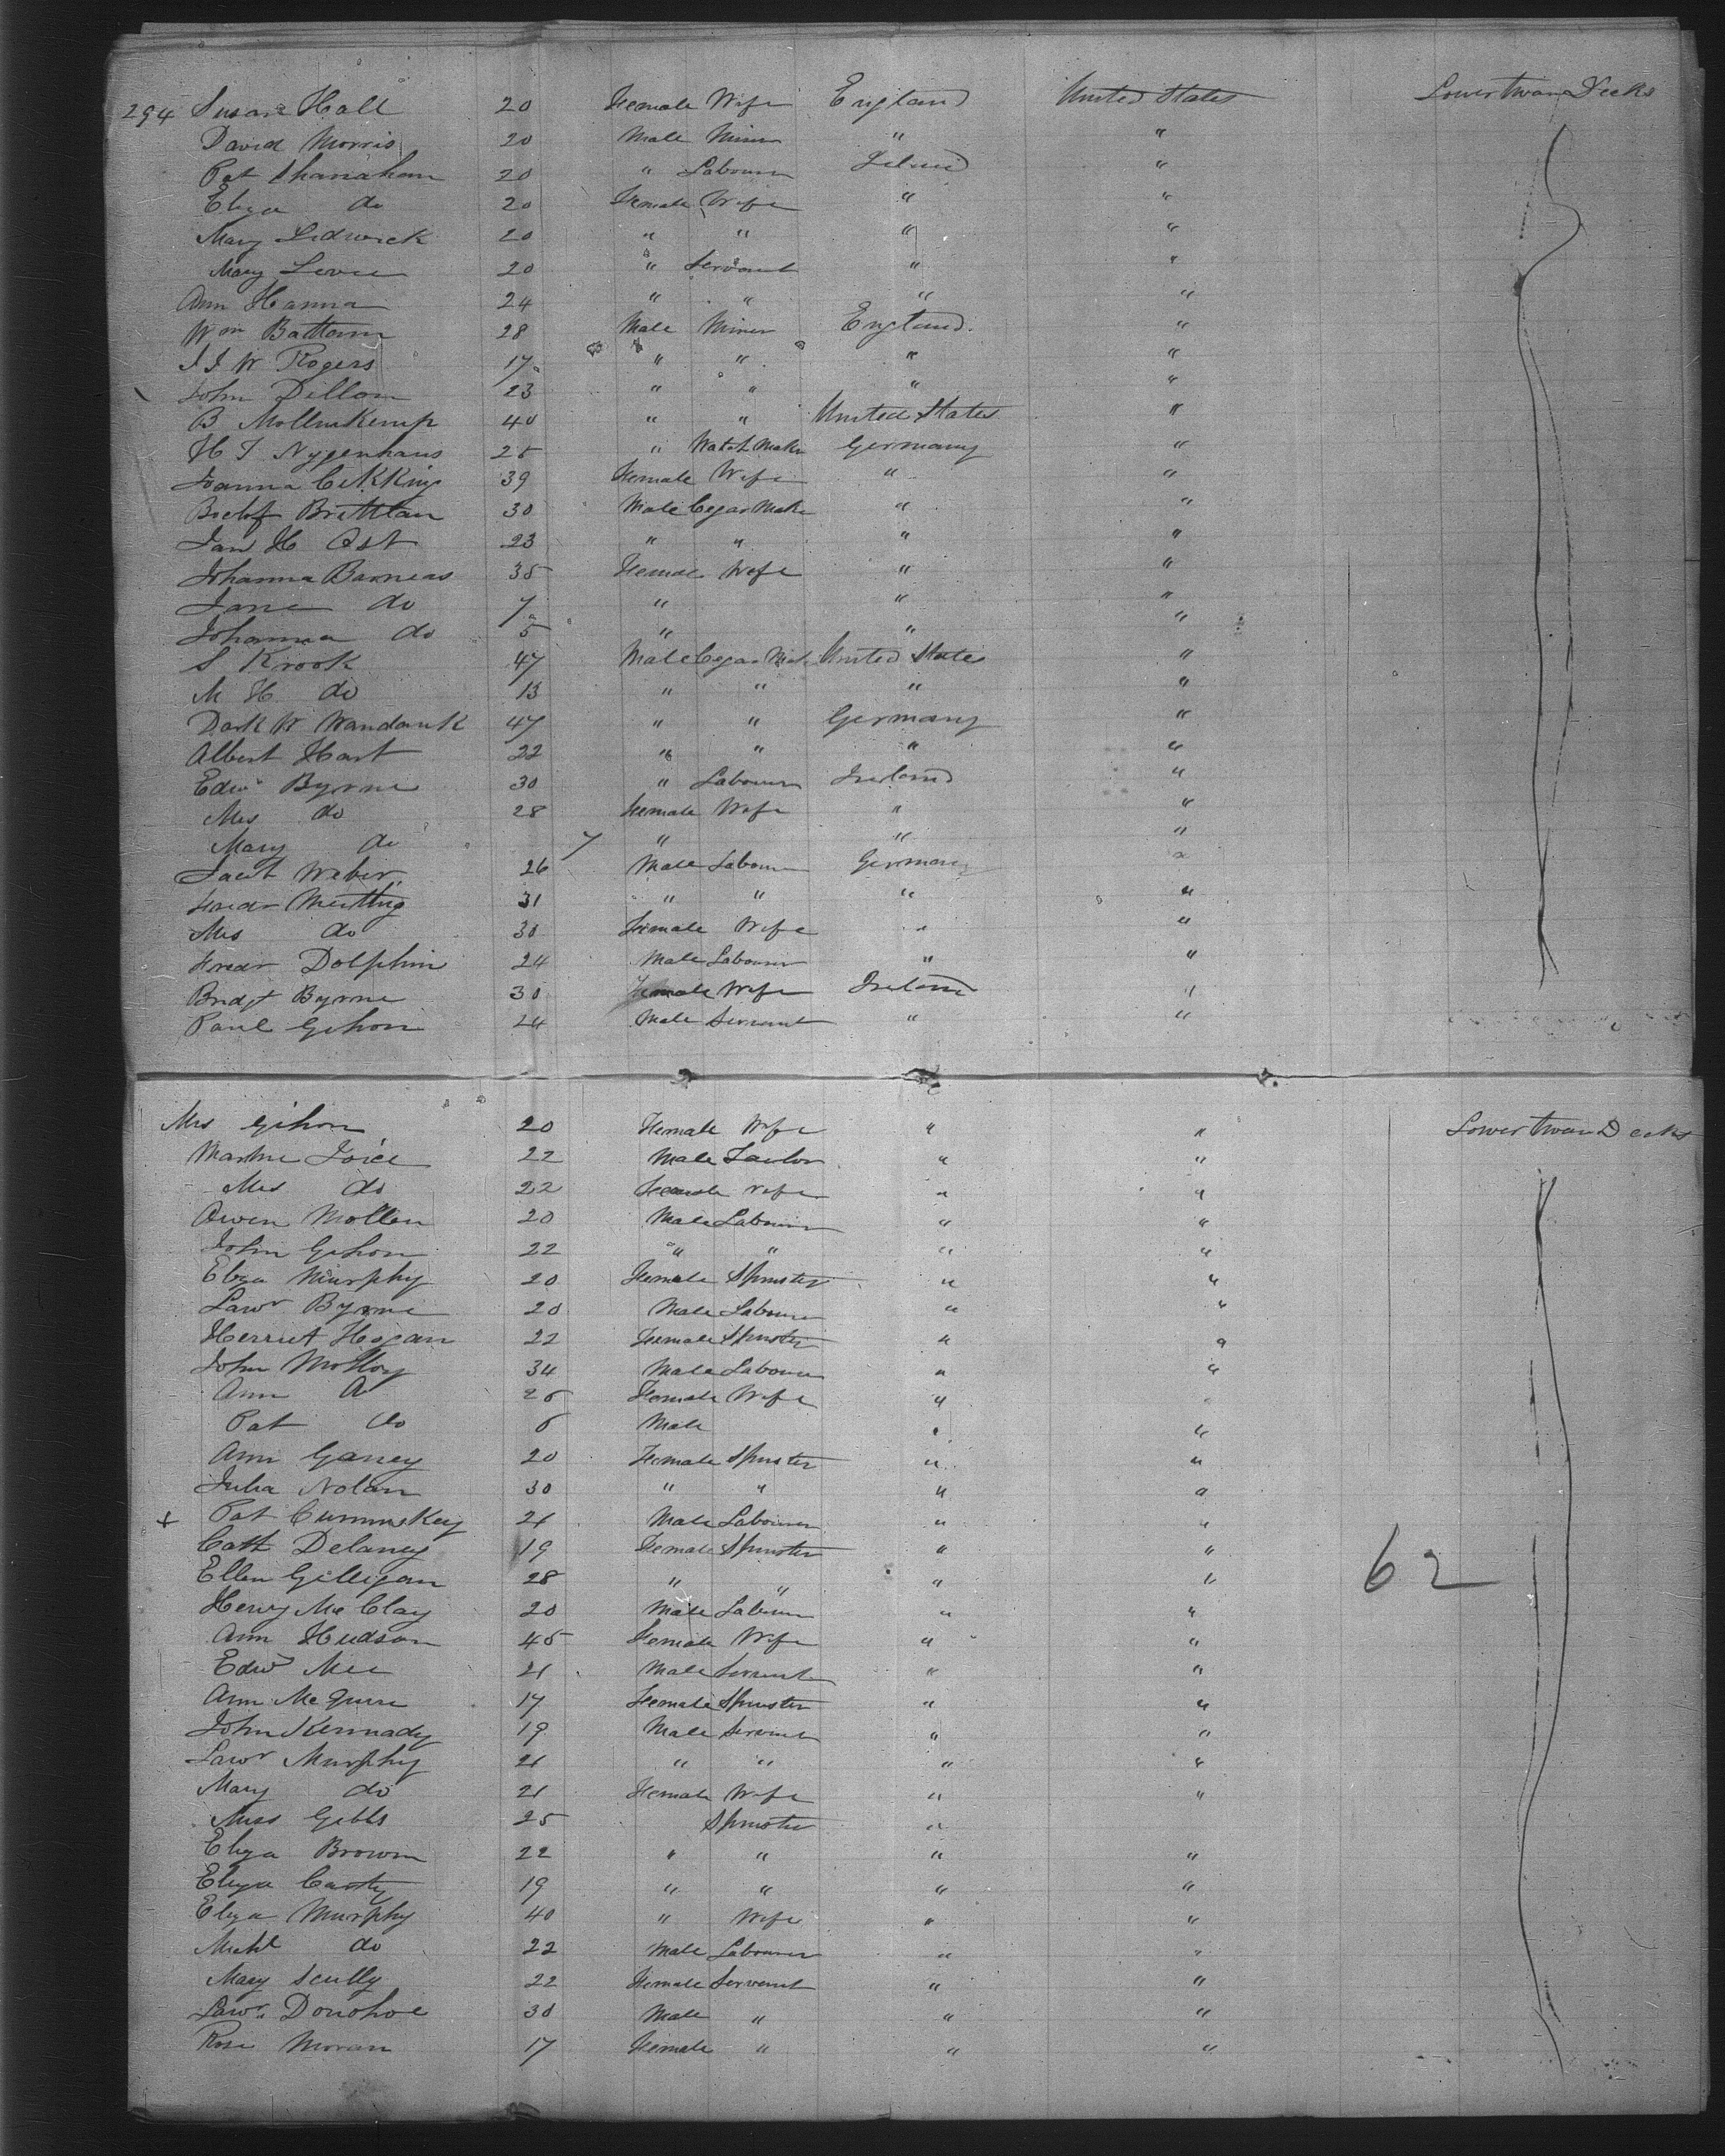 294 Susan Hall 20 Female Wife England United States Lower Twan Decks
David Morris 20 Male Miner " "
Pat Shanaham 20 " Labourer Ireland "
Eliza do 20 Female Wife " "
Mary Ledwick 20 " " " "
Mary 20 " Servant " "
Ann Hanna 24 " " " "
Wm Battam 28 Male Miner England. "
J J W Rogers 17 " " " "
John Dillon 23 " " " "
B Mollenkemp 40 " " United States "
H J Nygenhaus 25 " Watch Make Germany "
Joanna 39 Female Wife " "
Brittlan 30 Male Cegar Make " "
Jan H Ost 23 " " " "
Johanna Barneas 35 Female Wife " "
Jane do 7 " " "
Johanna do 5 " " "
S Krook 47 Male Cegar Mak United States "
M H do 13 " " " "
W Wandank 47 " " Germany "
Albert Hart 22 " " " "
Edwd Byrne 30 " Labourer Ireland "
Mrs do 28 Female Wife " "
Mary do 7 " " "
Weber 26 Male Labourer Germany "
Fredr 31 " " " "
Mrs do 30 Female Wife " "
Fredr Dolphin 24 Male Labourer " "
Bridgt Byrne 30 Female Wife Ireland "
Paul Gihon 24 Male Servant " "
Mrs Gihon 20 Female Wife " " Lower Twan Decks
Joice 22 Male Tailor " "
Mrs do 22 Female Wife " "
Owen Mollen 20 Male Labourer " "
John Gihon 22 " " " "
Eliza Murphy 20 Female Spinster " "
Lawr Byrne 20 Male Labourer " "
Herriet Hogan 22 Female Spinster " "
John Molloy 34 Male Labourer " "
Ann do 26 Female Wife " "
Pat do 6 Male " "
Ann Garvey 20 Female Spinster " "
Julia Nolan 30 " " " "
+ Pat Cummskey 21 Male Labourer " "
Cath Delaney 19 Female Spinster " "
Ellen Gilligan 28 " " " " 62
Henry Mc Clay 20 Male Labourer " "
Ann Hudson 45 Female Wife " "
Edwd Mee 21 Male Servant " "
Ann McGuire 17 Female Spinster " "
John Kennady 19 Male Servant " "
Lawr Murphy 21 " " " "
Mary do 21 Female Wife " "
Miss Gibbs 25 Spinster "
Eliza Brown 22 " " " "
Eliza Casty 19 " " " "
Eliza Murphy 40 " Wife " "
Michl do 22 Male Labourer " "
Mary Scully 22 Female Servant " "
Lawr Donohoe 30 Male " " "
Rose Moran 17 Female " " "